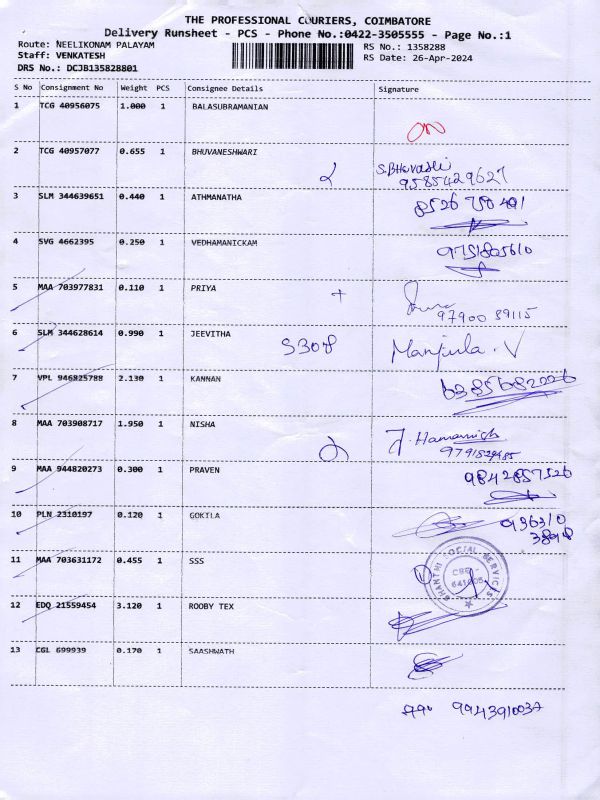 THE PROFESSIONAL COURIERS, COIMBATORE
Delivery Runsheet - PCS - Phone No.:0422-3505555 - Page No.:1
Route: NEELIKONAM PALAYAM
RS No.: 1358288
Staff: VENKATESH
RS Date: 26-Apr-2024
DRS No.: DCJB135828801
S No Consignment No Weight PCS Consignee Details Signature
1 TCG 40956075 1.000 1 BALASUBRAMANIAN
2 TCG 40957077 0.655 1 BHUVANESHWARI
9585429627
3 SLM 344639651 0.440 1 ATHMANATHA
4 SVG 4662395 0.250 1 VEDHAMANICKAM 9751805610
5 MAA 703977831 0.110 1 PRIYA
97900 39115
6 SLM 344628614 0.990 1 JEEVITHA S308 Manjula . V
7 VPL 946825788 2.130 1 KANNAN 6385682226
8 MAA 703908717 1.950 1 NISHA
9 MAA 944820273 0.300 1 PRAVEN 9842857526
10 PLN 2310197 0.120 1 GOKILA
11 MAA 703631172 0.455 1 SSS
SHANTHI SOCIAL SERVICES
CBE -
12 EDQ 21559454 3.120 1 ROOBY TEX
13 CGL 699939 0.170 1 SAASHWATH